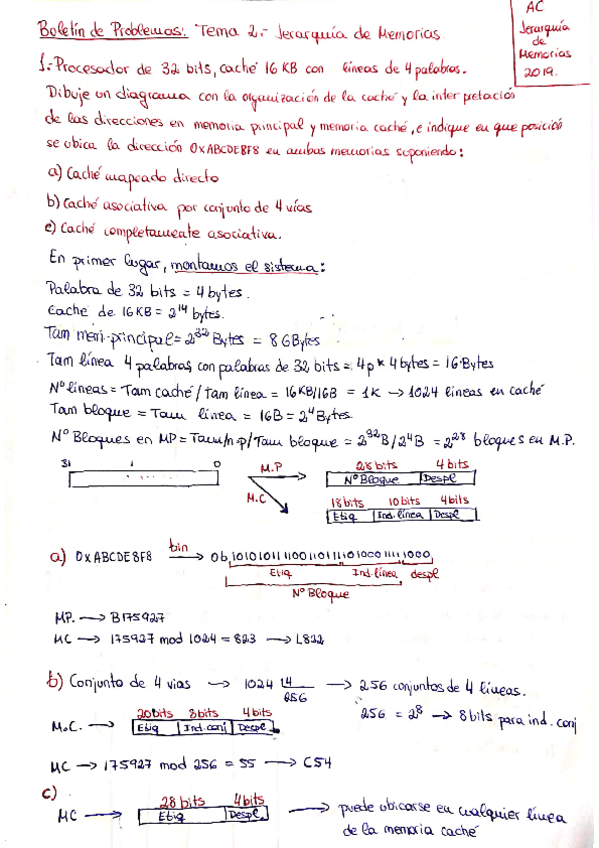 AC
Jerarquía
de
Memorias
2019.
Boletín de Problemas: Tema 2.- Jerarquía de Memorias
1.- Procesador de 32 bits, caché 16 KB con líneas de 4 palabras.
Dibuje un diagrama con la organización de la caché y la interpretación
de las direcciones en memoria principal y memoria caché, e indique en que posición
se ubica la dirección 0xABCDE8F8 en ambas memorias suponiendo:
a) Caché mapeado directo
b) Caché asociativa por conjunto de 4 vías
c) Caché completamente asociativa.
En primer lugar, montamos el sistema:
Palabra de 32 bits = 4 bytes.
Cache de 16KB = 2^14 bytes.
Tam mem. principal = 2^32 Bytes = 8 GBytes
Tam línea 4 palabras, con palabras de 32 bits = 4p * 4 bytes = 16 Bytes
Nº líneas = Tam caché / tam línea = 16KB/16B = 1K → 1024 lineas en caché
Tam bloque = Tam línea = 16B = 2^4 Bytes
Nº Bloques en MP = Tam m.p / Tam bloque = 2^32B/2^4B = 2^28 bloques en M.P.
31 0 M.P 28 bits 4 bits
Nº Bloque Despl
M.C 18 bits 10 bits 4 bits
Etiq Ind. línea Despl
a) 0xABCDE8F8 bin → 0b 10101011110011011110100011111000
Etiq Ind. línea despl
Nº Bloque
MP. → B175927
MC → 175927 mod 1024 = 823 → L822
b) Conjunto de 4 vias → 1024 4 → 256 conjuntos de 4 líneas.
256
20 bits 8 bits 4 bits 256 = 2^8 → 8 bits para ind. conj
M.C. → Etiq Ind. conj Despl
MC → 175927 mod 256 = 55 → C54
c)
28 bits 4 bits
MC → Etiq Despl → puede ubicarse en cualquier línea
de la memoria caché